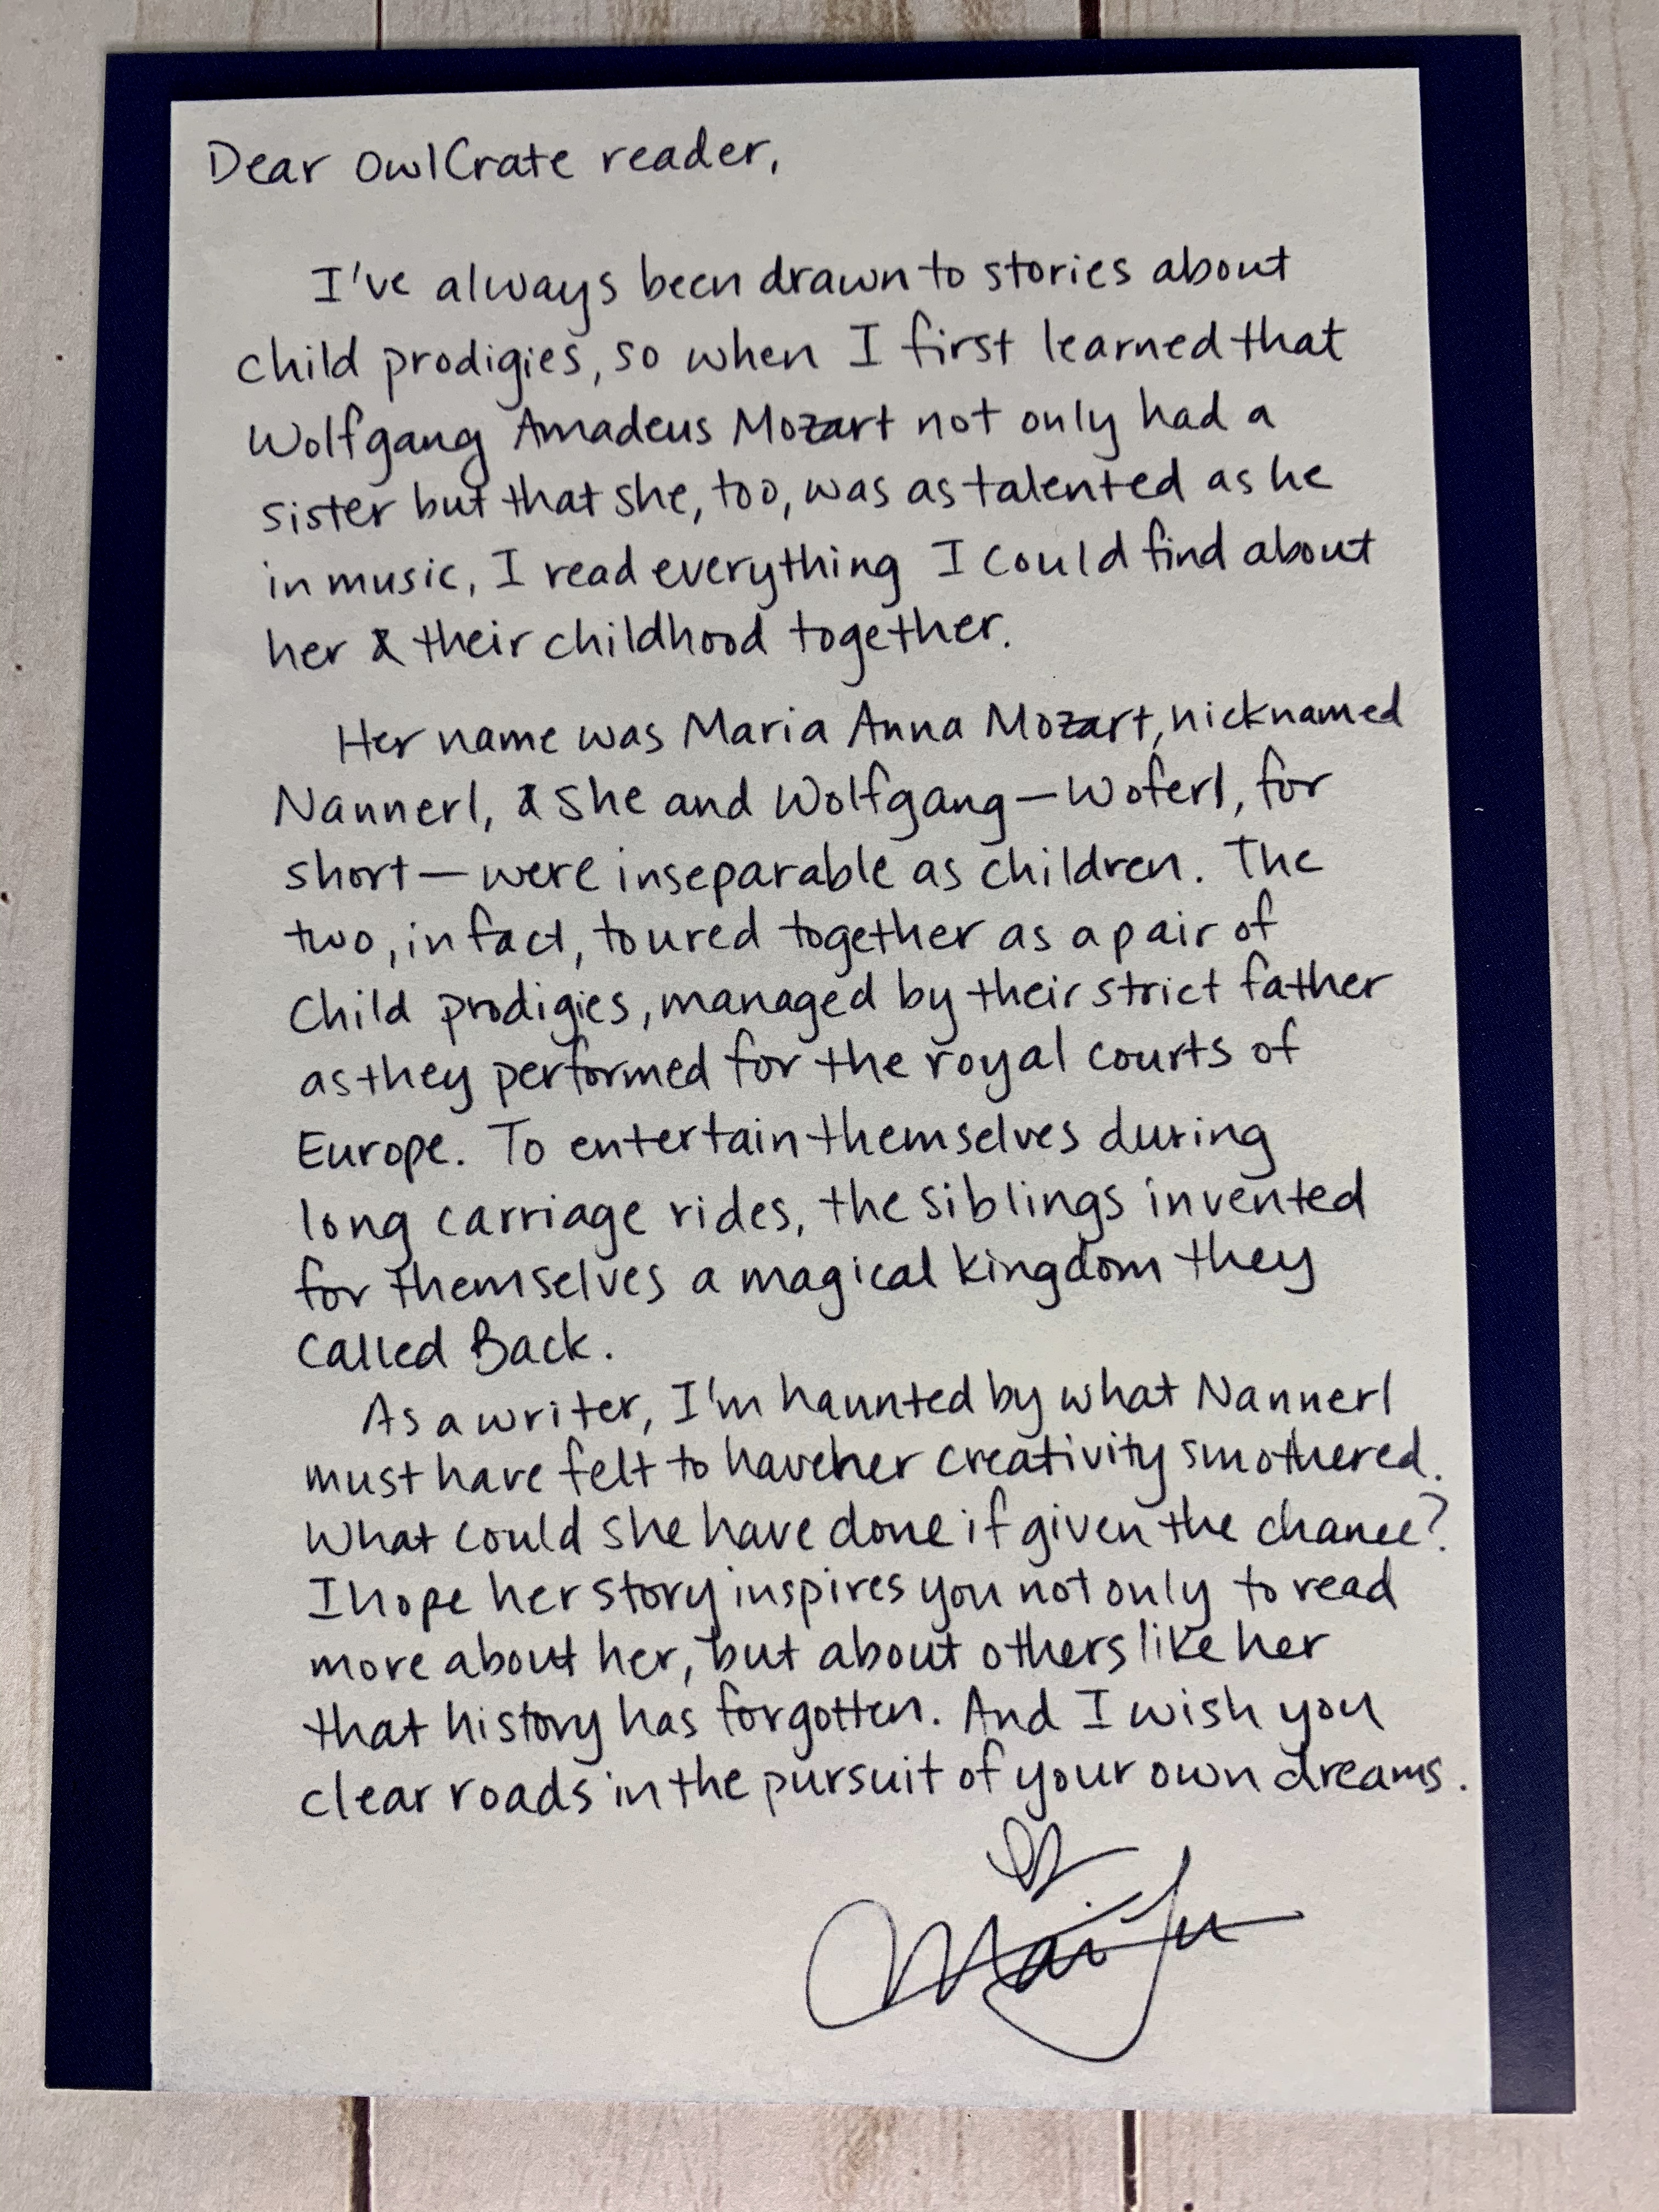 Dear OwlCrate reader,
I've always been drawn to stories about
child prodigies, so when I first learned that
Wolfgang Amadeus Mozart not only had a
sister but that she, too, was as talented as he
in music, I read everything I could find about
her & their childhood together.
Her name was Maria Anna Mozart, nicknamed
Nannerl, & she and Wolfgang—Woferl, for
short—were inseparable as children. The
two, in fact, toured together as a pair of
child prodigies, managed by their strict father
as they performed for the royal courts of
Europe. To entertain themselves during
long carriage rides, the siblings invented
for themselves a magical kingdom they
called Back.
As a writer, I'm haunted by what Nannerl
must have felt to have her creativity smothered.
What could she have done if given the chance?
I hope her story inspires you not only to read
more about her, but about others like her
that history has forgotten. And I wish you
clear roads in the pursuit of your own dreams.
Marie Lu